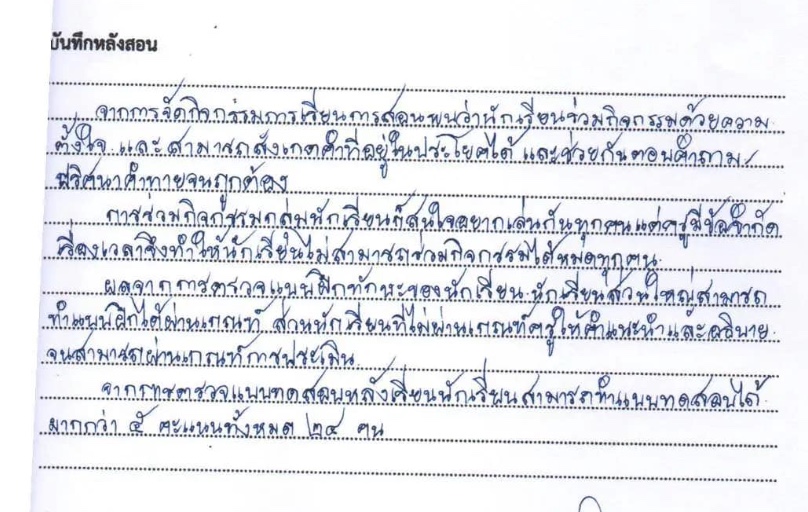 บันทึกหลังสอน
จากการจัดกิจกรรมการเรียนการสอนพบว่านักเรียนร่วมกิจกรรมด้วยความ
ตั้งใจ และสามารถสังเกตคำที่อยู่ในประโยคได้ และช่วยกันตอบคำถาม
ปริศนาคำทายจนถูกต้อง
การร่วมกิจกรรมกลุ่มนักเรียนก็สนใจอยากเล่นกันทุกคนแต่ครูมีข้อจำกัด
เรื่องเวลาจึงทำให้นักเรียนไม่สามารถร่วมกิจกรรมได้หมดทุกคน
ผลจากการตรวจแบบฝึกทักษะของนักเรียน นักเรียนส่วนใหญ่สามารถ
ทำแบบฝึกได้ผ่านเกณฑ์ ส่วนนักเรียนที่ไม่ผ่านเกณฑ์ครูให้คำแนะนำและอธิบาย
จนสามารถผ่านเกณฑ์การประเมิน
จากการตรวจแบบทดสอบหลังเรียนนักเรียนสามารถทำแบบทดสอบได้
มากกว่า ๕ คะแนนทั้งหมด ๒๔ คน